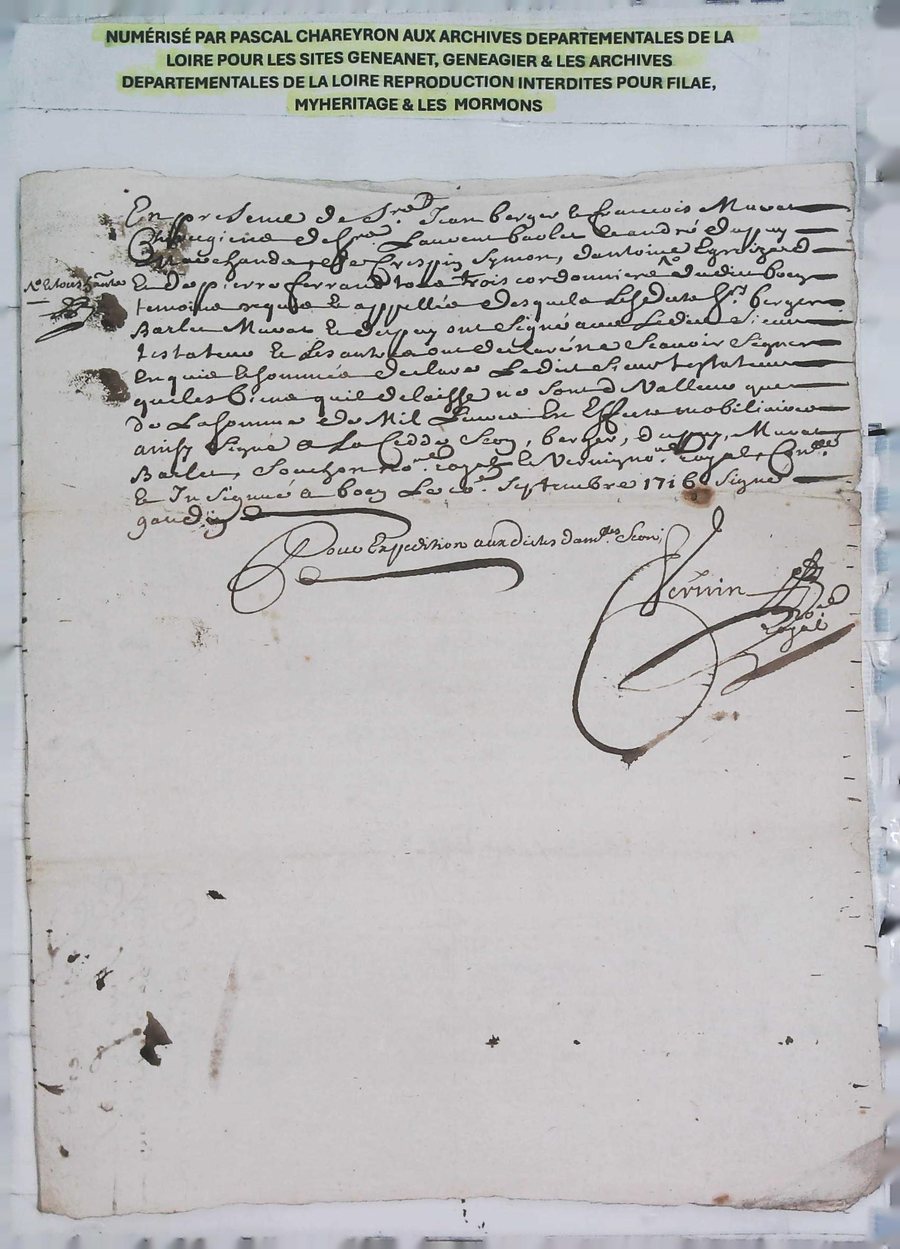 NUMÉRISÉ PAR PASCAL CHAREYRON AUX ARCHIVES DEPARTEMENTALES DE LA
LOIRE POUR LES SITES GENEANET, GENEAGIER & LES ARCHIVES
DEPARTEMENTALES DE LA LOIRE REPRODUCTION INTERDITES POUR FILAE,
MYHERITAGE & LES MORMONS
En presence de Srs Jean berger et francois Murat
Chirugiens de Laurent barlet et andré dupuy
marchands, de Crespin Symon, dantoine
Et de pierre ferrand tous trois cordonniers dudict boen
temoins requis et appellés desquels lesdicts Srs berger
Barlet Murat et dupuy ont Signé avec Ledict Sieur
testateur et Les autres ont declaré ne Scavoir Signer
Enquis et sommés a declaré Ledict Sieur testateur
que les biens quil delaisse ne Sont de Valleur que
de La somme de Mil Livres En Effects mobiliaires
ainsy Signé a La Cedde Seon, berger, dupuy, Murat
Barlet, Souchon no.re royal et no.re royal
Et Insignué a boen Le Septembre 1716 Signé
gaudin
Pour Expedition auxdictes dam.lles Seon
Vernin
no.re
royal